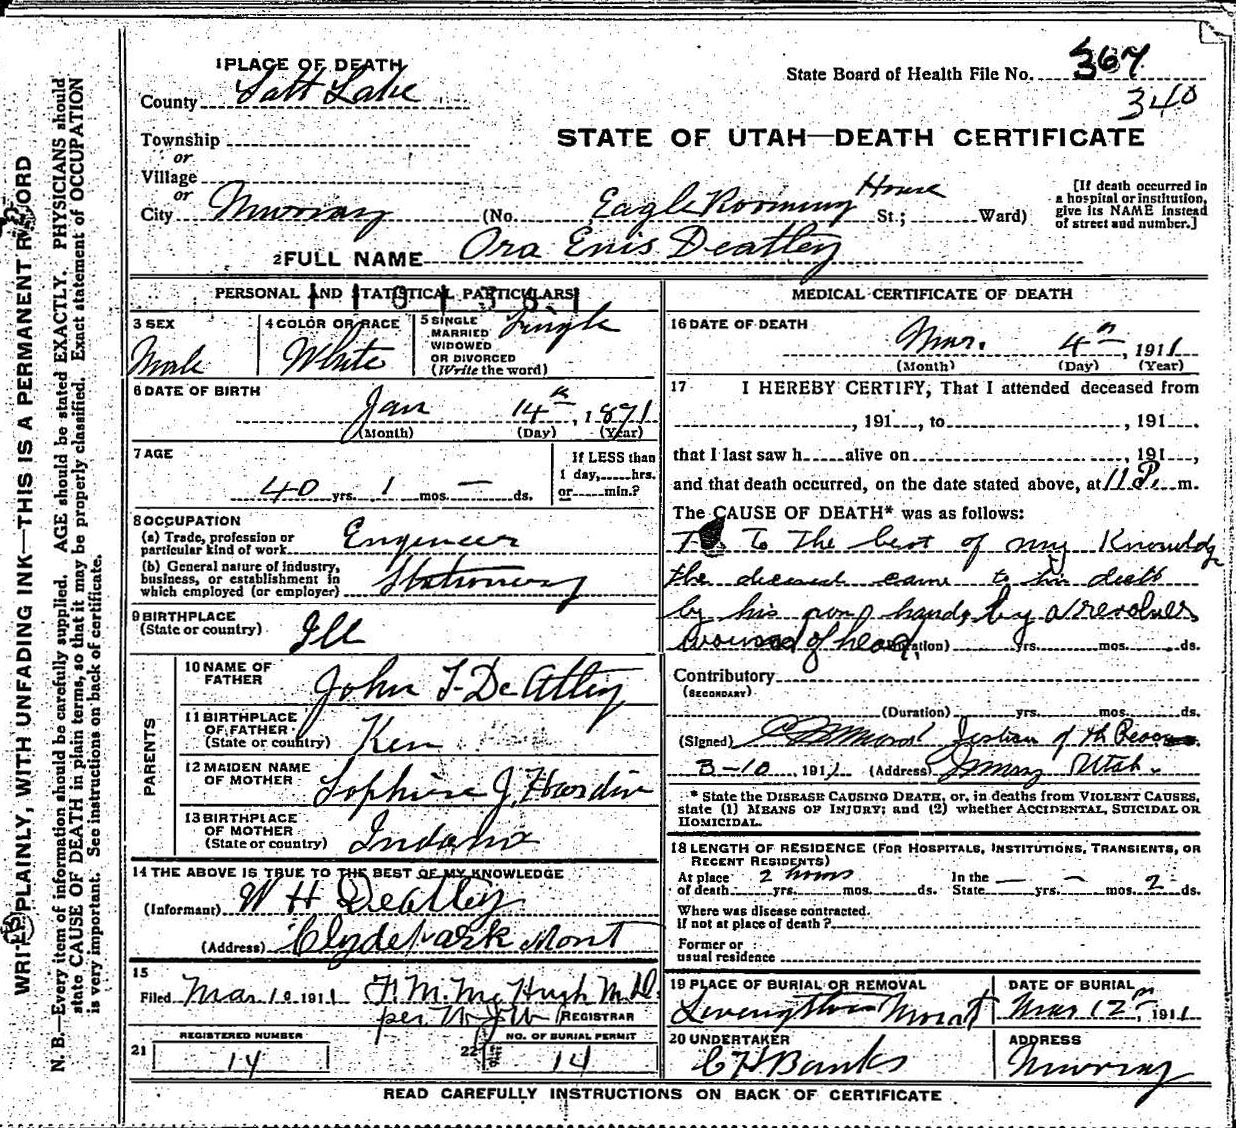 1 PLACE OF DEATH
County Salt Lake
State Board of Health File No. 367
340
Township
or
Village
or
City Murray (No. Eagle Rooming House St.; Ward)
STATE OF UTAH—DEATH CERTIFICATE
[If death occurred in a hospital or institution, give its NAME instead of street and number.]
2 FULL NAME Ora Enis Deatley
PERSONAL AND STATISTICAL PARTICULARS
3 SEX Male
4 COLOR OR RACE White
5 SINGLE MARRIED WIDOWED OR DIVORCED (Write the word) Single
6 DATE OF BIRTH Jan 14th, 1871
(Month) (Day) (Year)
7 AGE 40 yrs. 1 mos. — ds.
If LESS than 1 day, hrs. or min.?
8 OCCUPATION
(a) Trade, profession or particular kind of work Engineer
(b) General nature of industry, business, or establishment in which employed (or employer) Stationery
9 BIRTHPLACE (State or country) Ill
PARENTS
10 NAME OF FATHER John T. DeAtley
11 BIRTHPLACE OF FATHER (State or country) Ken
12 MAIDEN NAME OF MOTHER Sophina J. Hardin
13 BIRTHPLACE OF MOTHER (State or country) Indana
14 THE ABOVE IS TRUE TO THE BEST OF MY KNOWLEDGE
(Informant) W H Deatley
(Address) Clyde park Mont
15
Filed Mar 10 1911 F. M. McHugh M.D.
per REGISTRAR
REGISTERED NUMBER
21 14
NO. OF BURIAL PERMIT
22 14
MEDICAL CERTIFICATE OF DEATH
16 DATE OF DEATH Mar. 4th, 1911
(Month) (Day) (Year)
17 I HEREBY CERTIFY, That I attended deceased from
, 191 , to , 191 .
that I last saw h alive on , 191 ,
and that death occurred, on the date stated above, at 11 P. m.
The CAUSE OF DEATH* was as follows:
To The best of my Knowldge
the deceased came to his death
by his own hands, by a revolver
wound of head, (Duration) yrs. mos. ds.
Contributory
(SECONDARY)
(Duration) yrs. mos. ds.
(Signed) Justice of the Peace
3-10, 1911 (Address) Murray Utah.
* State the DISEASE CAUSING DEATH, or, in deaths from VIOLENT CAUSES,
state (1) MEANS OF INJURY; and (2) whether ACCIDENTAL, SUICIDAL OR
HOMICIDAL.
18 LENGTH OF RESIDENCE (FOR HOSPITALS, INSTITUTIONS, TRANSIENTS, OR RECENT RESIDENTS)
At place of death 2 hours yrs. mos. ds. In the State — yrs. — mos. 2 ds.
Where was disease contracted.
if not at place of death?
Former or
usual residence
19 PLACE OF BURIAL OR REMOVAL Livingston Mont
DATE OF BURIAL Mar 12th, 1911
20 UNDERTAKER C H Banks
ADDRESS Murray
READ CAREFULLY INSTRUCTIONS ON BACK OF CERTIFICATE.
WRITE PLAINLY, WITH UNFADING INK—THIS IS A PERMANENT RECORD
N. B.—Every item of information should be carefully supplied. AGE should be stated EXACTLY. PHYSICIANS should
state CAUSE OF DEATH in plain terms, so that it may be properly classified. Exact statement of OCCUPATION
is very important. See instructions on back of certificate.